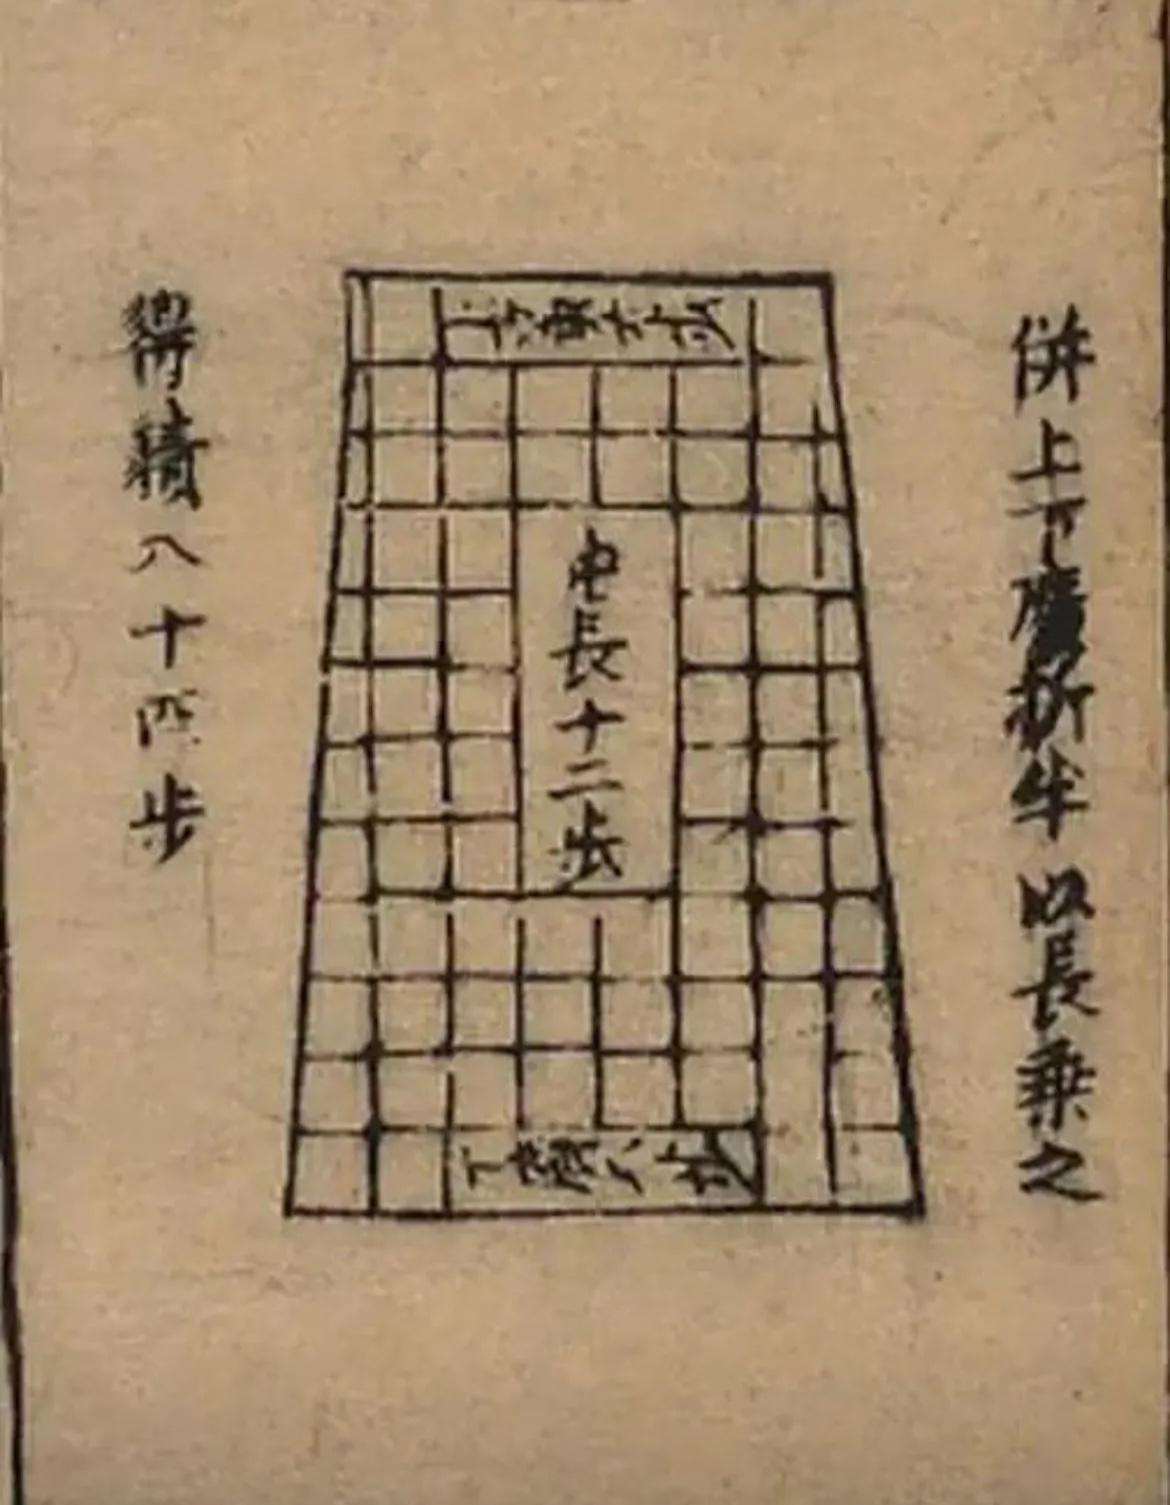 併上下廣折半以長乗之
上廣六步
中長十二步
下廣八步
得積八十四步